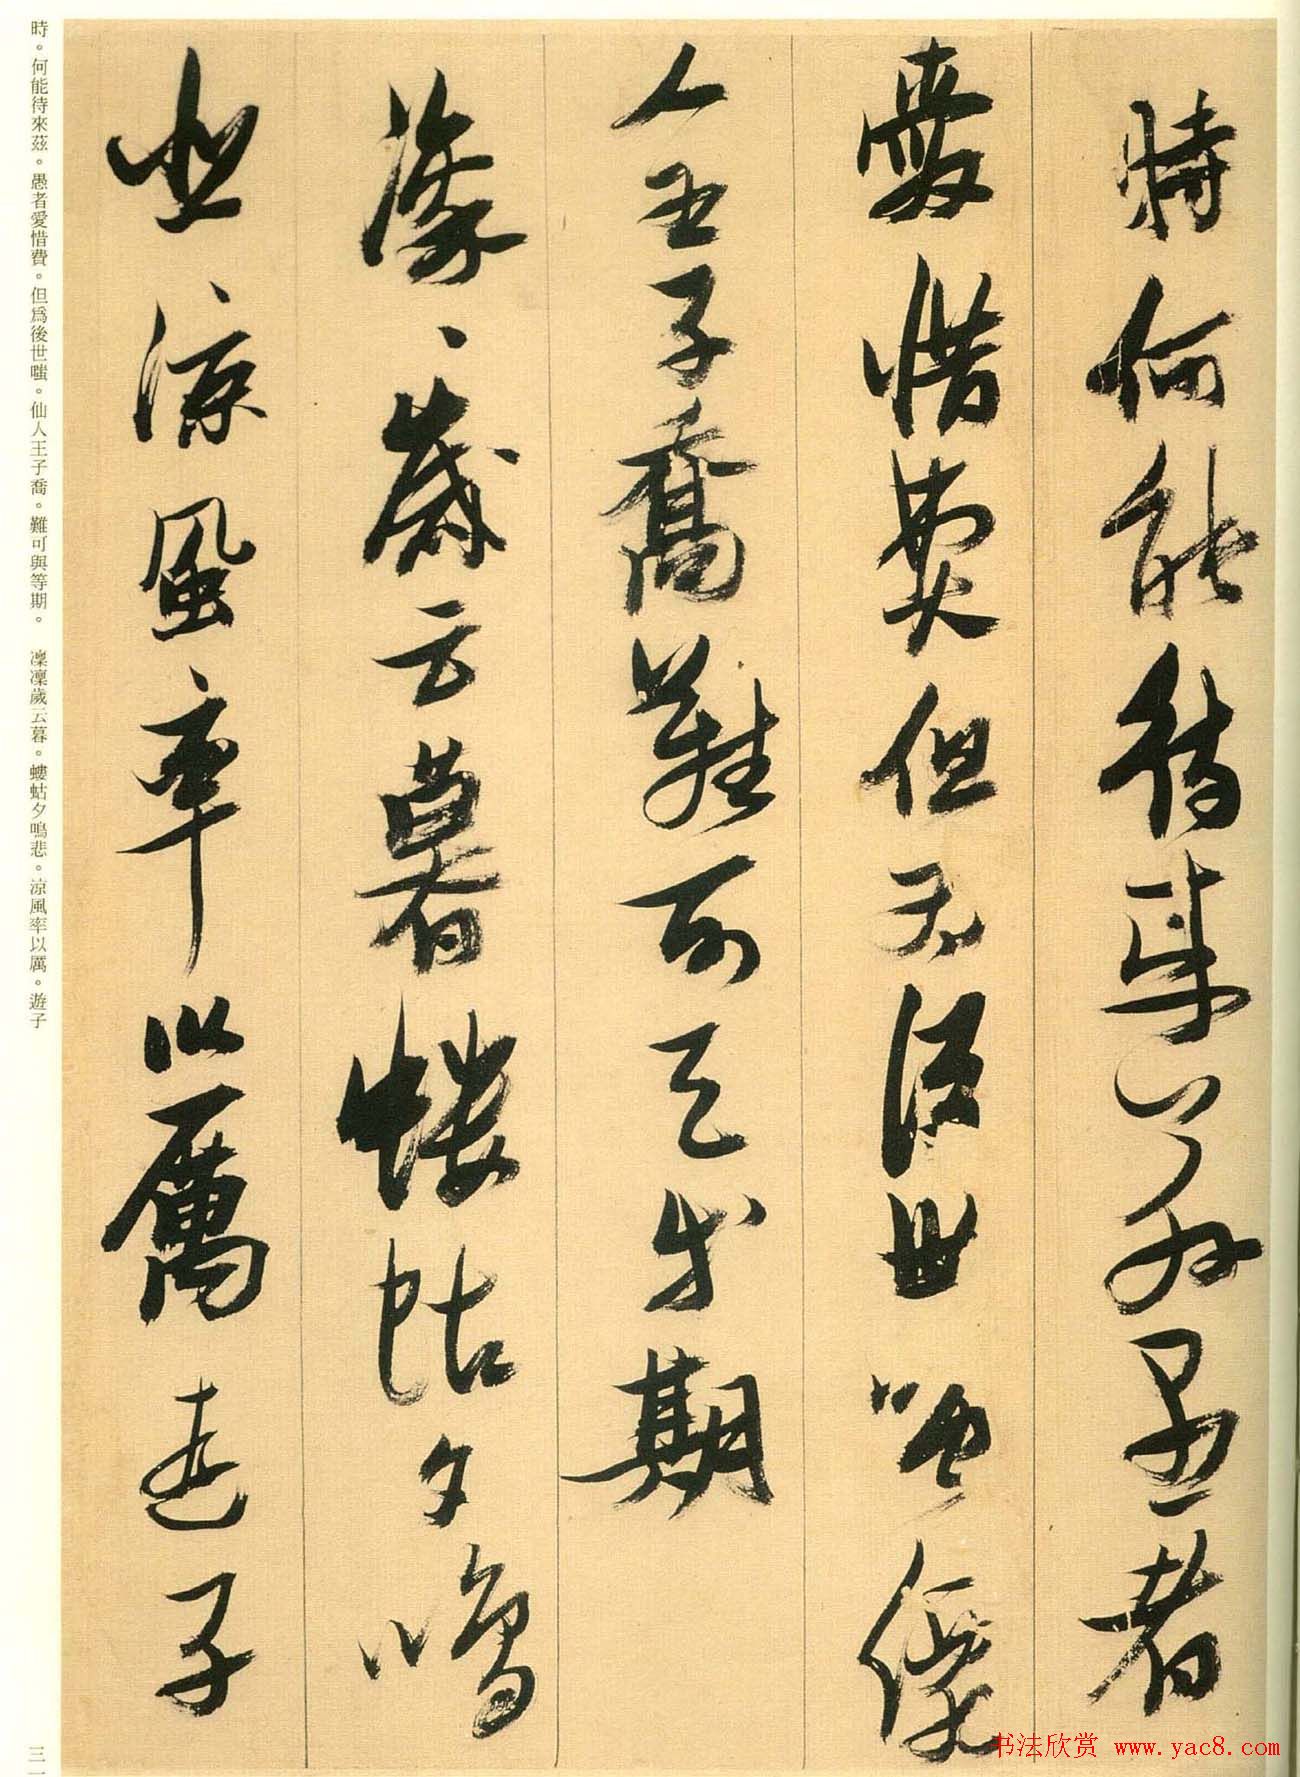 時何能待來茲愚者
愛惜費但為後世嗤僊
人王子喬難可與等期
凜〻歲云暮螻蛄夕鳴
悲涼風率以厲遊子
時。何能待來茲。愚者愛惜費。但爲後世嗤。仙人王子喬。難可與等期。　凜凜歲云暮。螻蛄夕鳴悲。涼風率以厲。遊子
三一
书法欣赏 www.yac8.com